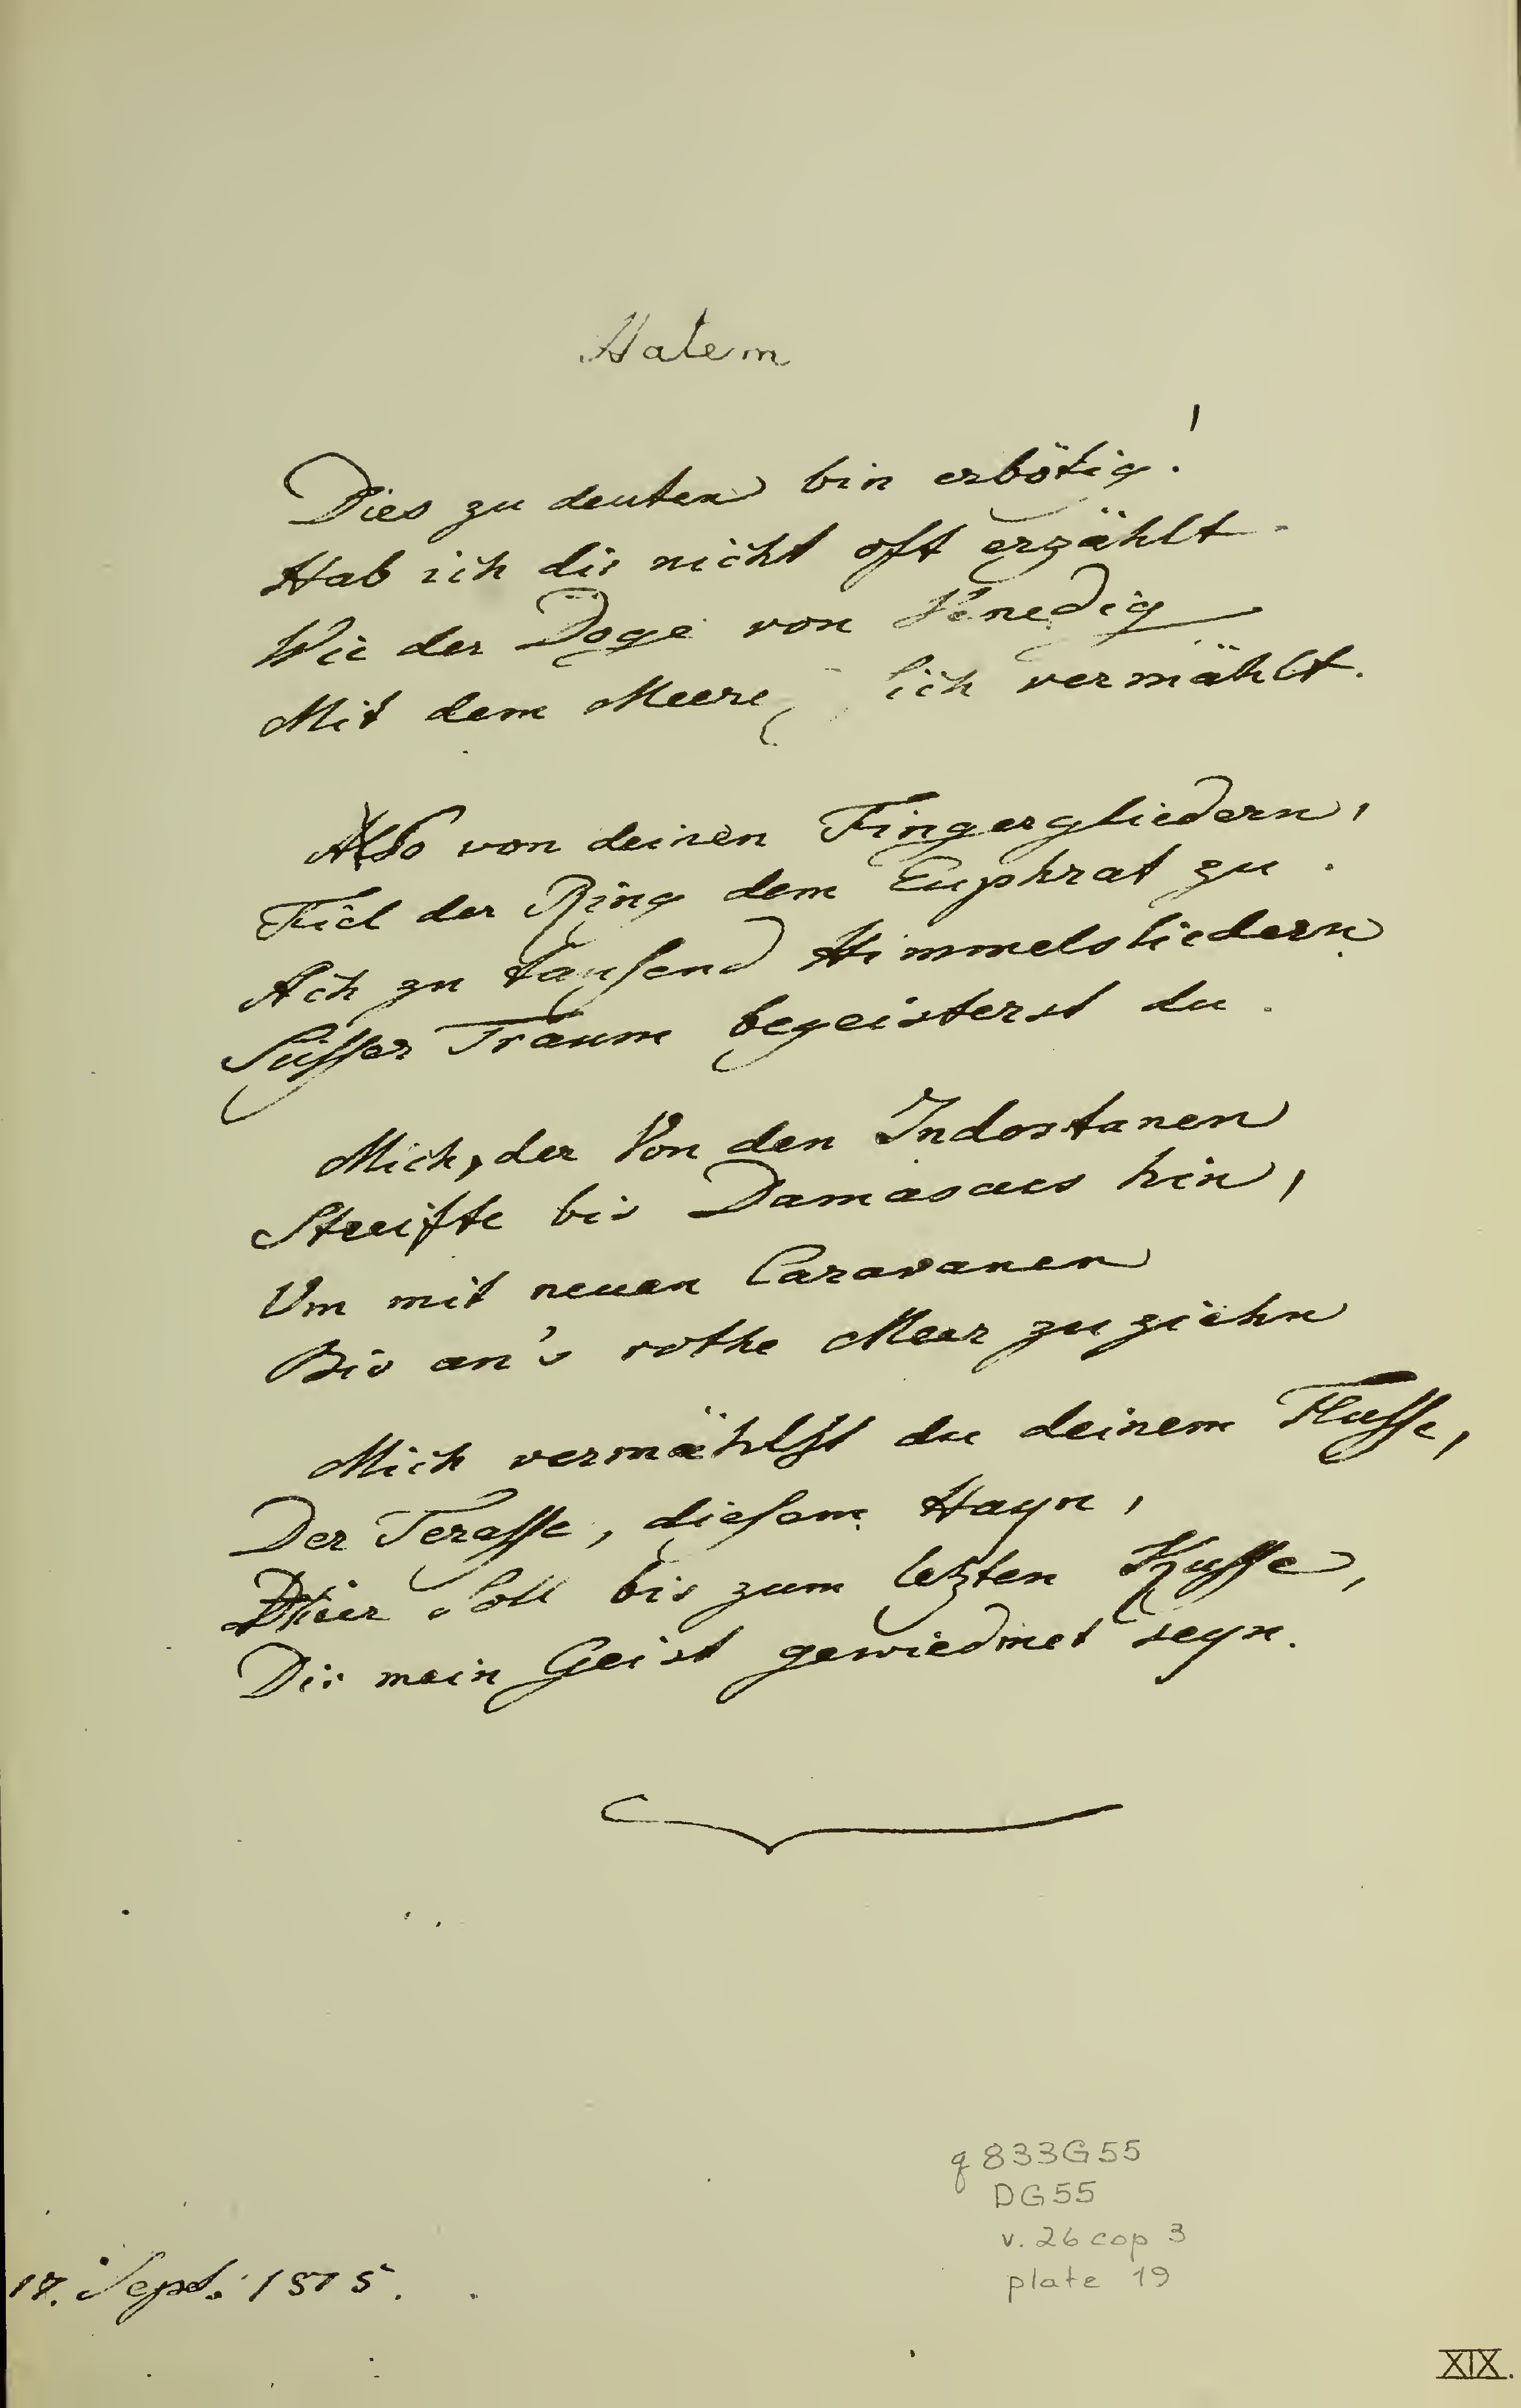 Hatem
Dies zu deuten bin erbötig!
Hab ich dir nicht oft erzählt
Wie der Doge von Venedig
Mit dem Meere sich vermählt.
Also von deinen Fingergliedern,
Fiel der Ring dem Euphrat zu.
Ach zu tausend Himmelsliedern
Süsser Traum begeisterst du.
Mich, der Von den Indostanen
Streifte bis Damascus hin,
Um mit neuen Caravanen
Bis an's rothe Meer zu ziehn
Mich vermählst du deinem Flusse,
Der Terasse, diesem Hayn,
Hier soll bis zum letzten Kusse,
Dir mein Geist gewiedmet seyn.
17. Sept. 1815.
q833G55
DG55
v. 26 cop 3
plate 19
XIX.